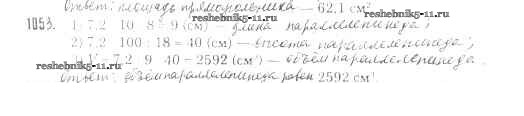 Ответ: площадь прямоугольника — 62,1 см².
reshebnik5-11.ru
1053. 1) 7,2 · 10 : 8 = 9 (см) — длина параллелепипеда;
reshebnik5-11.ru
2) 7,2 · 100 : 18 = 40 (см) — высота параллелепипеда;
7,2 · 9 · 40 = 2592 (см³) — объём параллелепипеда.
reshebnik5-11.ru
reshebnik5-11.ru
Ответ: объём параллелепипеда равен 2592 см³.